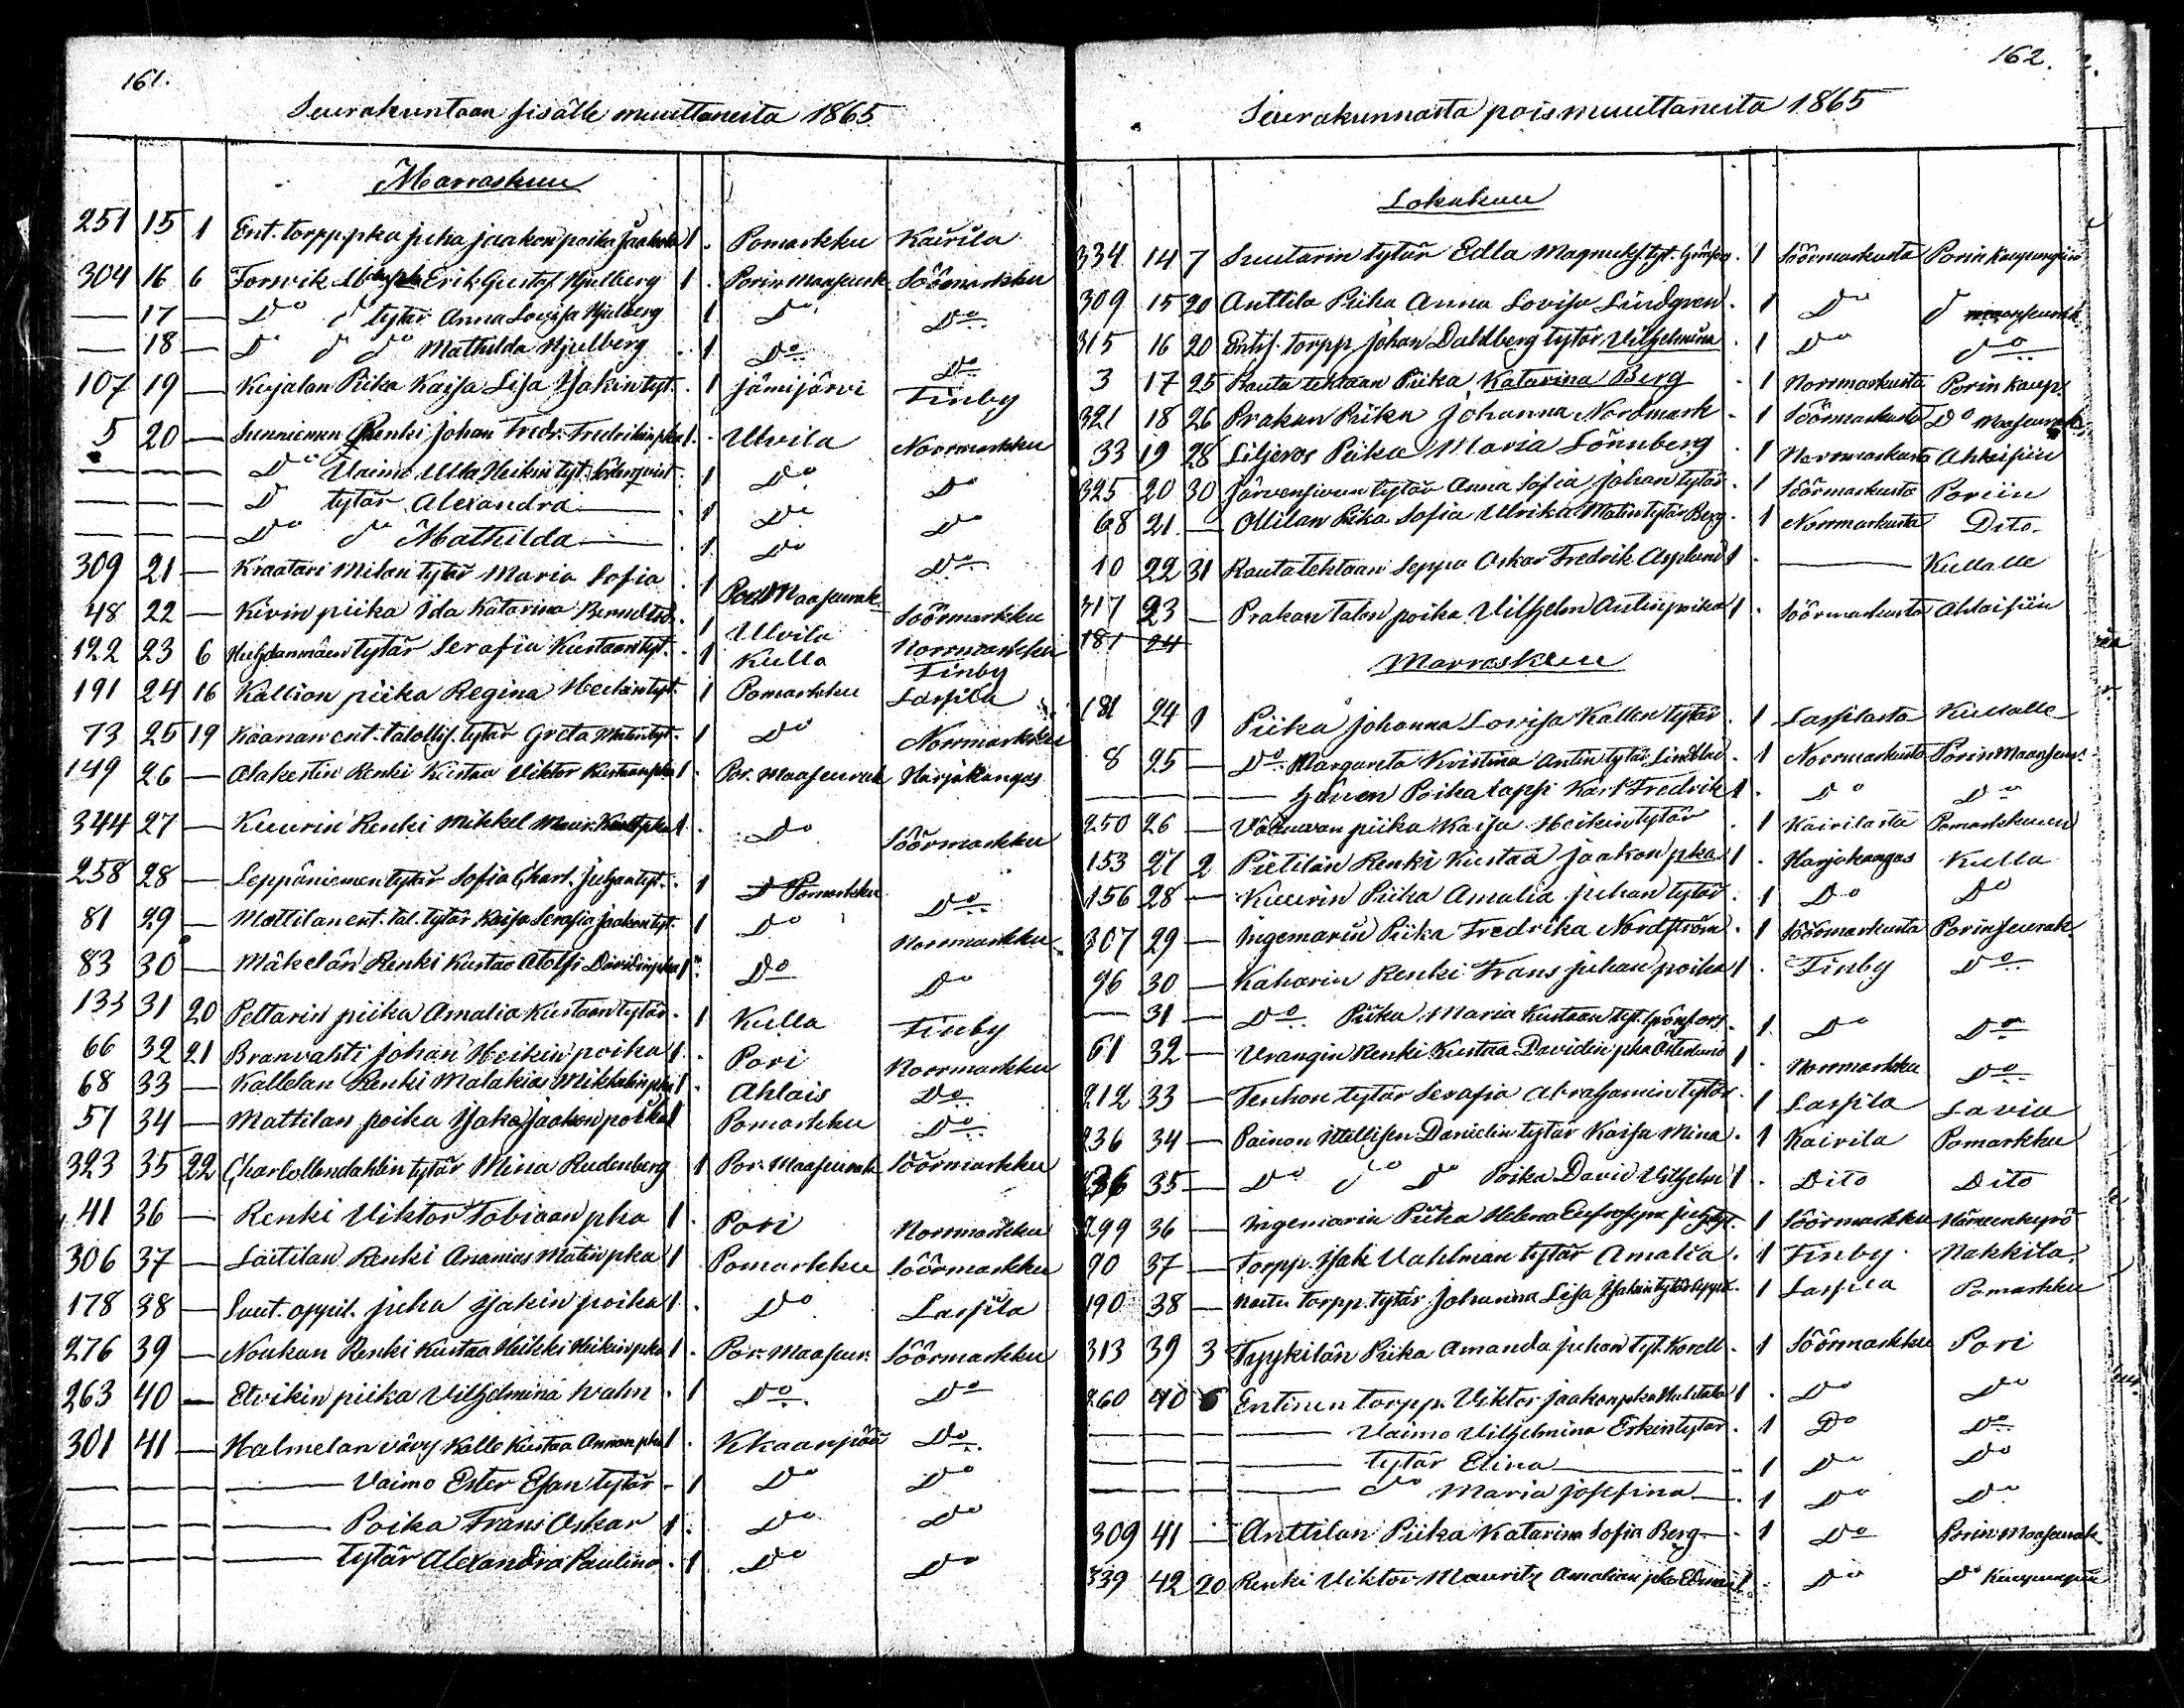 161.
Seurakuntaan sisälle muuttaneita 1865
Marraskuu
251 15 1 Ent. torpp. pka Juha Jaakon poika Jaakola 1 . Pomarkku Kairila
304 16 6 Forsvik Erik Gustaf Hjulberg 1 . Porin Maaseurk Söörmarkku
— 17 — Do do tytär Anna Lovisa Hjulberg . 1 Do Do
— 18 — Do do do Mathilda Hjulberg . 1 Do Do
107 19 — Kujalan Piika Kaisa Lisa Isakin tyt. . 1 Jämijärvi Finby
5 20 — Sunniemen Renki Johan Fredr. Fredrikin pka 1 . Ulvila Norrmarkku
— — — Do Vaimo Ulla Heikin tyt. . 1 Do Do
— — — Do tytär Alexandra — . 1 Do Do
— — — Do do Mathilda — . 1 Do Do
309 21 — Kraatari Milan tytär Maria Sofia . 1 Porin Maaseurak. Söörmarkku
48 22 — Kivin piika Ida Katarina . 1 Ulvila Norrmarkku
122 23 6 tytär Serafia Kustaan tyt. . 1 Kulla Finby
191 24 16 Kallion piika Regina Heikin tyt. . 1 Pomarkku Lassila
73 25 19 Käänän ent. talollis. tytär Greta Matin tyt. . 1 Do Norrmarkku
149 26 — Alakestin Renki Kustaa Viktor Kustaan pka 1 . Por. Maaseurak Harjakangas
344 27 — Kuurin Renki Mikkel pka 1 . Do Söörmarkku
258 28 — Leppäniemen tytär Sofia Charl. Juhan tyt. . 1 Do Pomarkku Do
81 29 — Mattilan ent. tal. tytär Kaisa Serafia Jaakon tyt. . 1 Do Norrmarkku
83 30 — Mäkelän Renki Kustaa Atolfi Davidin pka 1 . Do Do
133 31 20 Peltarin piika Amalia Kustaan tytär . 1 Kulla Finby
66 32 21 Branvahti Johan Heikin poika 1 . Pori Norrmarkku
68 33 — Kallelan Renki Malakias Mikkelin pka 1 . Ahlais Do
57 34 — Mattilan poika Isak Jaakon poika 1 Pomarkku Do
323 35 22 tytär Mina Rudenberg 1 Por. Maaseurak Söörmarkku
41 36 — Renki Viktor Tobiaan pka 1 . Pori Norrmarkku
306 37 — Laitilan Renki Ananias Matin pka 1 Pomarkku Söörmarkku
178 38 — Suut. oppil. Juha Isakin poika 1 . Do Lassila
276 39 — Noukun Renki Kustaa Heikki Heikin pka 1 . Por. Maaseur. Söörmarkku
263 40 — Elvikin piika Vilhelmina Wahn . 1 Do Do
301 41 — Halmelan vävy Kalle Kustaa Annan pka 1 . Kkaanpää Do
— — — — Vaimo Ester Esan tytär . 1 Do Do
— — — — Poika Frans Oskar 1 . Do Do
— — — — tytär Alexandra Paulina . 1 Do Do
162.
Seurakunnasta pois muuttaneita 1865
Lokakuu
334 14 7 Suutarin tytär Edla . 1 Söörmarkusta Porin kaupungiin
309 15 20 Anttila Piika Anna Lovisa Lindgren . 1 Do do maaseurak.
315 16 20 Entis. torpp. Johan Dahlberg tytär Vilhelmina . 1 Do do
3 17 25 Rauta tehtaan Piika Katarina Berg . 1 Norrmarkusta Porin kaup.
321 18 26 Prakan Piika Johanna Nordmark . 1 Söörmarkusta Do Maaseurak.
33 19 28 Liljeros Piika Maria Lönnberg . 1 Norrmarkusta Ahlaisiin
325 20 30 Järvensivun tytär Anna Sofia Johan tytär . 1 Söörmarkusta Poriin
68 21 — Ollilan Piika Sofia Ulrika Matin tytär Berg . 1 Norrmarkusta Dito.
10 22 31 Rautatehtaan Seppä Oskar Fredrik Asplund 1 . — Kullalle
317 23 — Prakan talon poika Vilhelm Antin poika 1 . Söörmarkusta Ahlaisiin
181 24
Marraskuu
181 24 1 Piika Johanna Lovisa Kallen tytär . 1 Lassilasta Kullalle
8 25 — Do Margareta Kristina Antin tytär Lindblad . 1 Norrmarkusta Porin Maaseur.
— — — — hänen Poika lapsi Karl Fredrik 1 . Do Do
250 26 — piika Kaisa Heikin tytär . 1 Kairilasta Pomarkkuun
153 27 2 Pietilän Renki Kustaa Jaakon pka 1 . Harjakangas Kulla
156 28 — Kuurin Piika Amalia Juhan tytär . 1 Do Do
307 29 — Ingemarin Piika Fredrika Nordström . 1 Söörmarkusta Porin seurak.
96 30 — Kaharin Renki Frans Juhan poika 1 . Finby Do
— 31 — Do Piika Maria Kustaan tyt. Grönfors . 1 Do Do
61 32 — Vrangin Renki Kustaa Davidin pka Österlund 1 . Norrmarkku Do
212 33 — Tenhon tytär Serafia Abrahamin tytär . 1 Lassila Lavia
236 34 — Painon Itellisen Danielin tytär Kaisa Mina . 1 Kairila Pomarkku
236 35 — Do do Do Poika David Vilhelm 1 . Dito Dito
299 36 — Ingemarin Piika Helena Eufrosyna Juh. tyt. . 1 Söörmarkku Hämeenkyrö
90 37 — Torpp. Isak Vahlman tytär Amalia . 1 Finby Nakkila.
190 38 — torpp. tytär Johanna Lisa Isakin tytär . 1 Lassila Pomarkku
313 39 3 Tyykilän Piika Amanda Juhan tyt. Korell . 1 Söörmarkku Pori
260 40 6 Entinen torpp. Viktor Jaakon pka Huhtala 1 . Do Do
— — — Vaimo Vilhelmina Erkin tytär . 1 Do Do
— — — tytär Elina — . 1 Do Do
— — — do Maria Josefina — . 1 Do Do
309 41 — Anttilan Piika Katarina Sofia Berg — . 1 Do Porin Maaseurak
339 42 20 Renki Viktor Mauritz Amalian pka 1 . Do Do kaupungiin